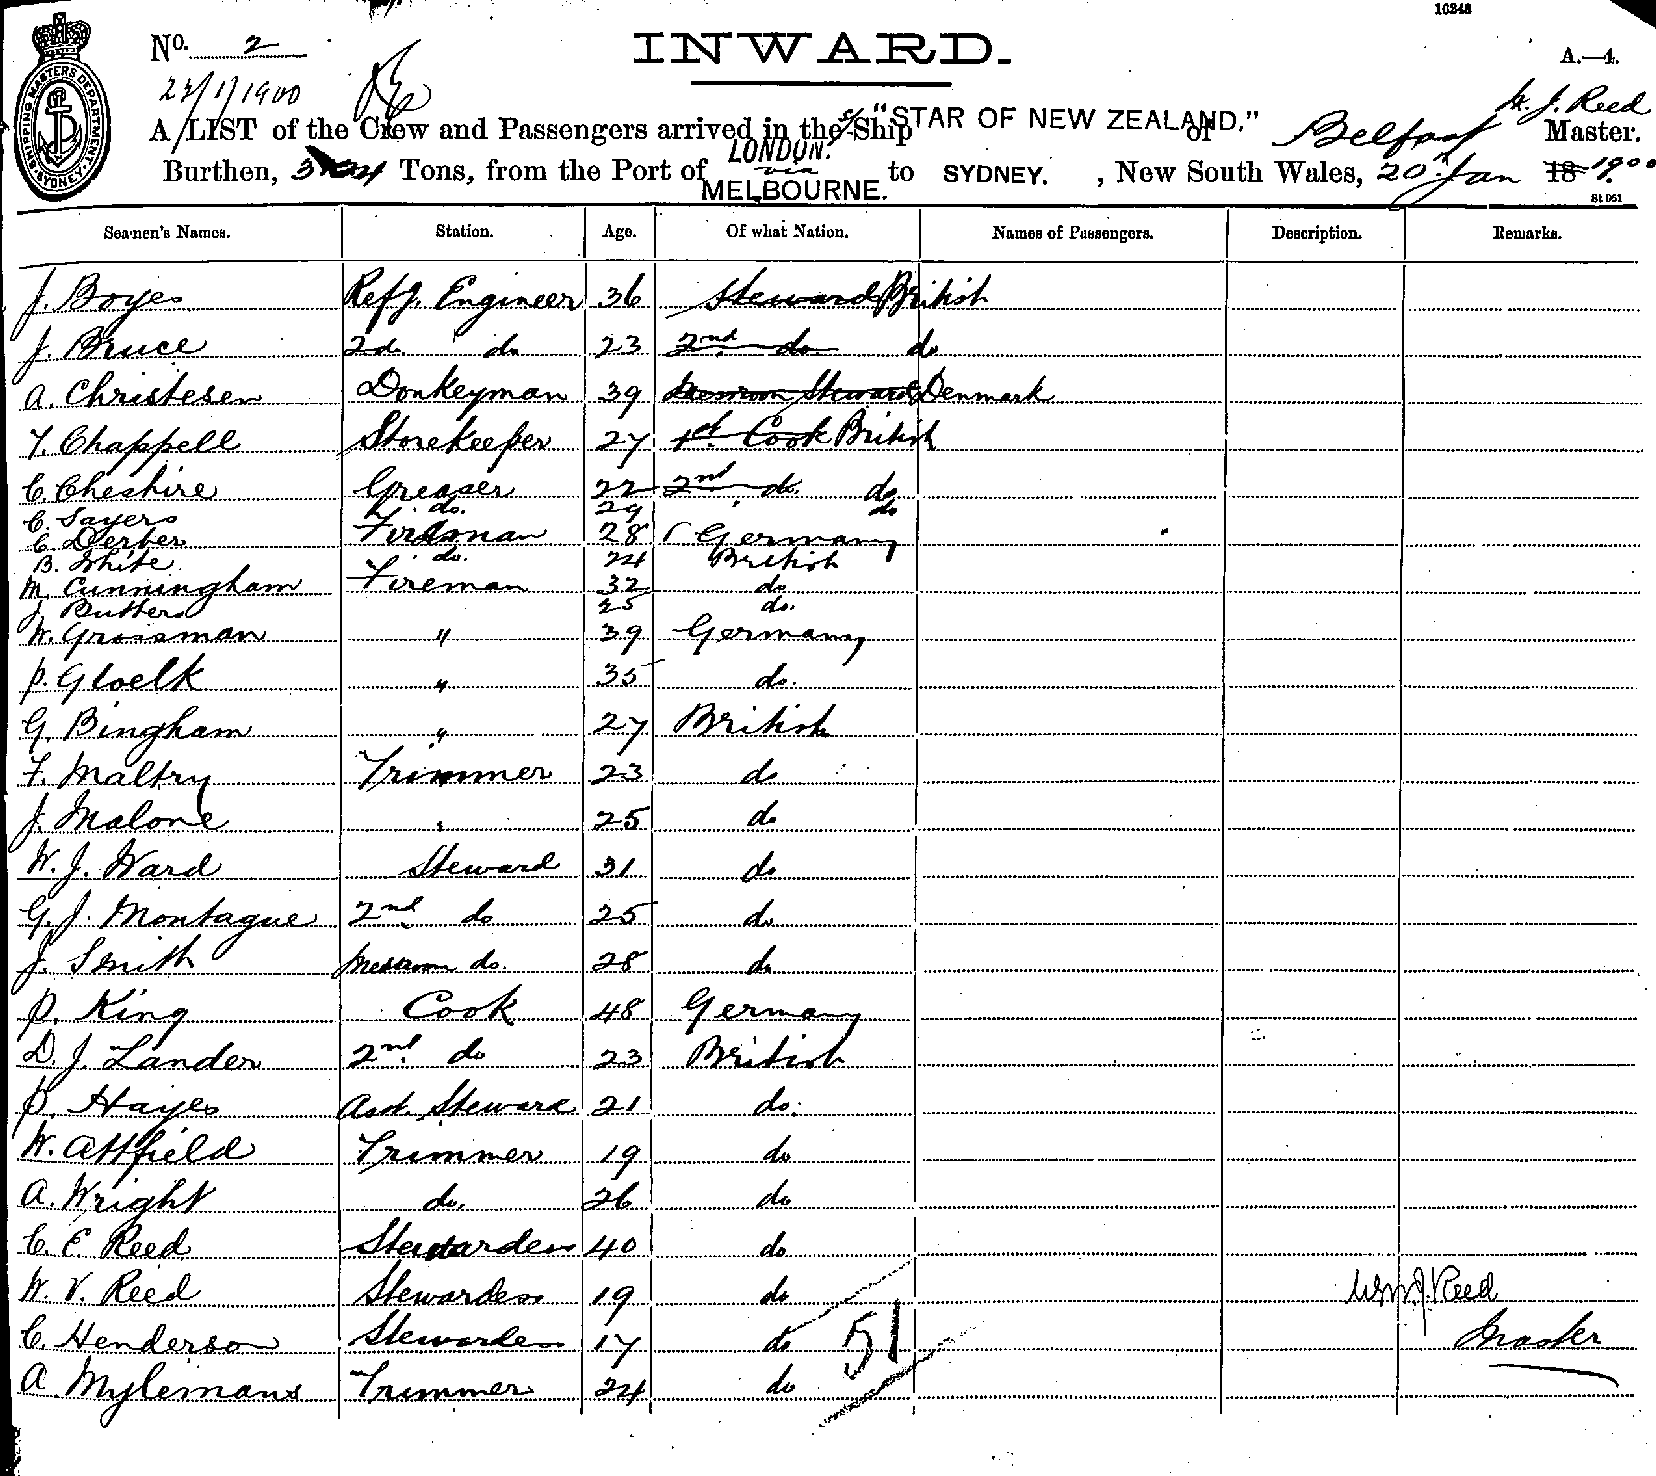 10348
No. 2
INWARD.
A.—4.
23/1/1900
W. J. Reed
A LIST of the Crew and Passengers arrived in the S/Ship "STAR OF NEW ZEALAND." of Belfast Master.
LONDON.
via
Burthen, Tons, from the Port of MELBOURNE. to SYDNEY. , New South Wales, 20th Jan 18 1900
SHIPPING MASTERS DEPARTMENT SYDNEY
St 051
Seamen's Names. Station. Age. Of what Nation. Names of Passengers. Description. Remarks.
J. Boyes Refg. Engineer 36 Steward British
J. Bruce 2d. do 23 2nd do do
A. Christesen Donkeyman 39 Messroom Steward Denmark
T. Chappell Storekeeper 27 1st. Cook British
C. Cheshire Greaser 22 2nd do. do.
C. Sayers do. 29 do
C. Derber Fireman 28 Germany
B. White do. 24 British
M. Cunningham Fireman 32 do
J. Butters 25 do.
W. Grossman " 39 Germany
P. Gloelk " 35 do.
G. Bingham " 27 British
F. Maltry Trimmer 23 do
J. Malone " 25 do
W. J. Ward Steward 31 do
G. J. Montague 2nd do 25 do
J. Smith Messroom do. 28 do
P. King Cook 48 Germany
D. J. Lander 2nd do 23 British
P. Hayes Asst. Steward 21 do.
W. Attfield Trimmer 19 do
A. Wright do. 26 do
C. E Reed Stewardess 40 do
W. V. Reed Stewardess 19 do
Wm. J. Reed
C. Henderson Stewardess 17 do 51
Master
A Mylemans Trimmer 24 do